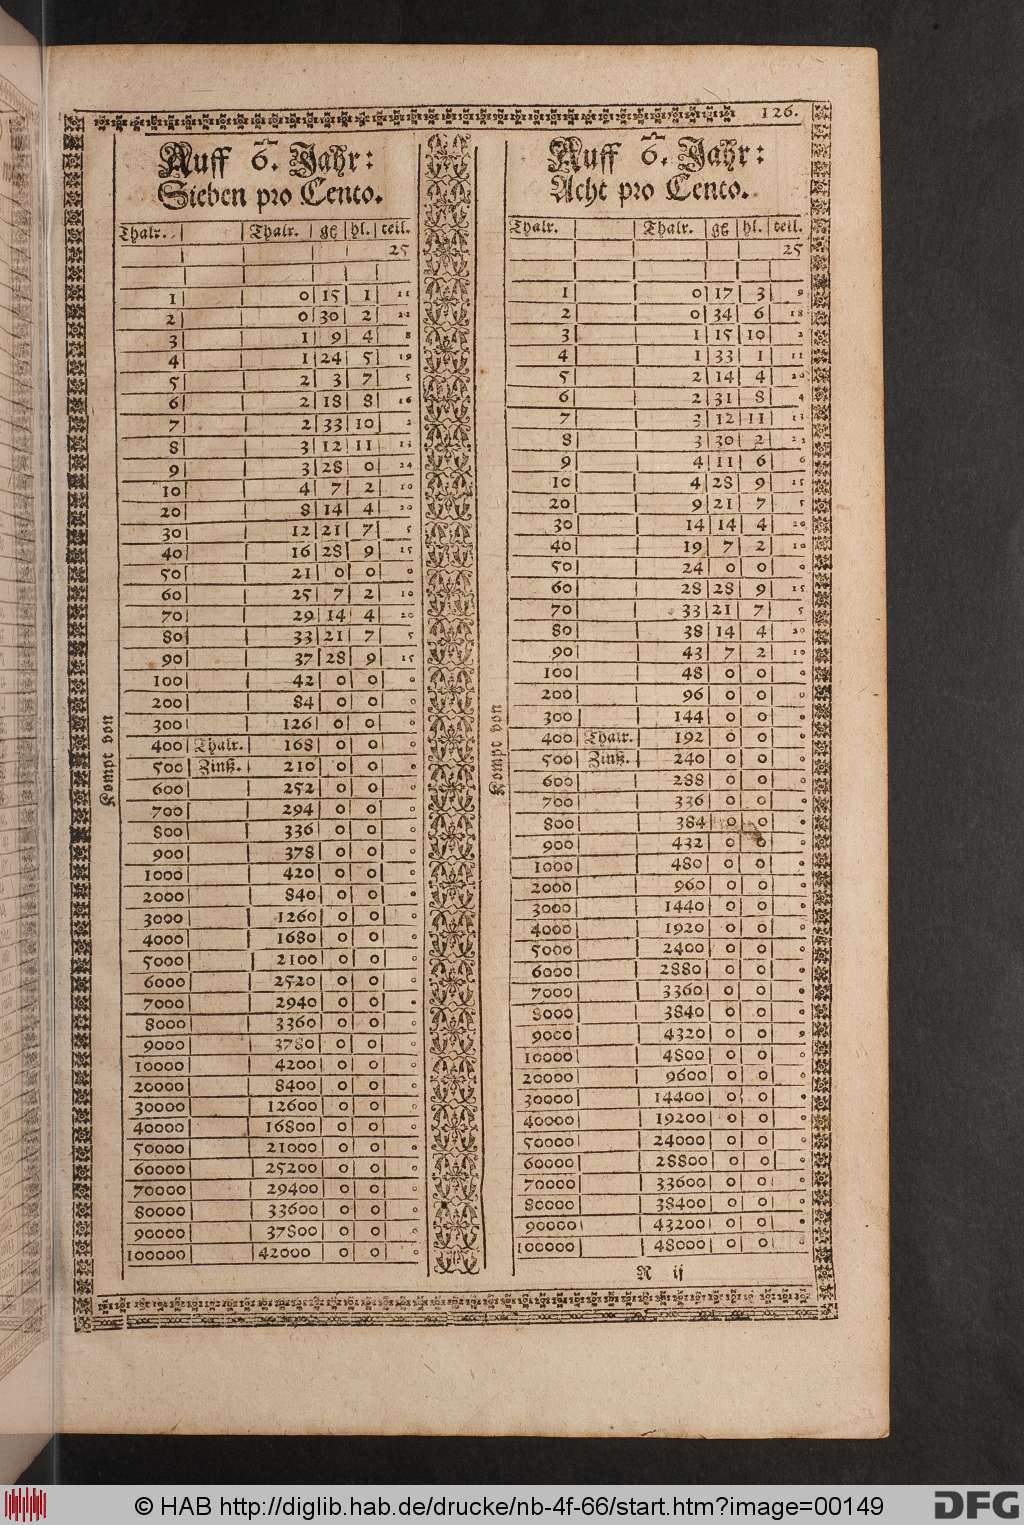 126.
Auff 6. Jahr:
Sieben pro Cento.
Thalr. | | Thalr. | gß | hl. | teil.
25
1 | 0 | 15 | 1 | 11
2 | 0 | 30 | 2 | 22
3 | 1 | 9 | 4 | 8
4 | 1 | 24 | 5 | 19
5 | 2 | 3 | 7 | 5
6 | 2 | 18 | 8 | 16
7 | 2 | 33 | 10 | 2
8 | 3 | 12 | 11 | 13
9 | 3 | 28 | 0 | 24
10 | 4 | 7 | 2 | 10
20 | 8 | 14 | 4 | 20
30 | 12 | 21 | 7 | 5
40 | 16 | 28 | 9 | 15
50 | 21 | 0 | 0 | 0
60 | 25 | 7 | 2 | 10
70 | 29 | 14 | 4 | 20
80 | 33 | 21 | 7 | 5
90 | 37 | 28 | 9 | 15
100 | 42 | 0 | 0 | 0
200 | 84 | 0 | 0 | 0
300 | 126 | 0 | 0 | 0
Kompt von
400 | Thalr. | 168 | 0 | 0 | 0
500 | Zinß. | 210 | 0 | 0 | 0
600 | 252 | 0 | 0 | 0
700 | 294 | 0 | 0 | 0
800 | 336 | 0 | 0 | 0
900 | 378 | 0 | 0 | 0
1000 | 420 | 0 | 0 | 0
2000 | 840 | 0 | 0 | 0
3000 | 1260 | 0 | 0 | 0
4000 | 1680 | 0 | 0 | 0
5000 | 2100 | 0 | 0 | 0
6000 | 2520 | 0 | 0 | 0
7000 | 2940 | 0 | 0 | 0
8000 | 3360 | 0 | 0 | 0
9000 | 3780 | 0 | 0 | 0
10000 | 4200 | 0 | 0 | 0
20000 | 8400 | 0 | 0 | 0
30000 | 12600 | 0 | 0 | 0
40000 | 16800 | 0 | 0 | 0
50000 | 21000 | 0 | 0 | 0
60000 | 25200 | 0 | 0 | 0
70000 | 29400 | 0 | 0 | 0
80000 | 33600 | 0 | 0 | 0
90000 | 37800 | 0 | 0 | 0
100000 | 42000 | 0 | 0 | 0
Auff 6. Jahr:
Acht pro Cento.
Thalr. | | Thalr. | gß | hl. | teil.
25
1 | 0 | 17 | 3 | 9
2 | 0 | 34 | 6 | 18
3 | 1 | 15 | 10 | 2
4 | 1 | 33 | 1 | 11
5 | 2 | 14 | 4 | 20
6 | 2 | 31 | 8 | 4
7 | 3 | 12 | 11 | 13
8 | 3 | 30 | 2 | 22
9 | 4 | 11 | 6 | 6
10 | 4 | 28 | 9 | 15
20 | 9 | 21 | 7 | 5
30 | 14 | 14 | 4 | 20
40 | 19 | 7 | 2 | 10
50 | 24 | 0 | 0 | 0
60 | 28 | 28 | 9 | 15
70 | 33 | 21 | 7 | 5
80 | 38 | 14 | 4 | 20
90 | 43 | 7 | 2 | 10
100 | 48 | 0 | 0 | 0
200 | 96 | 0 | 0 | 0
300 | 144 | 0 | 0 | 0
Kompt von
400 | Thalr. | 192 | 0 | 0 | 0
500 | Zinß. | 240 | 0 | 0 | 0
600 | 288 | 0 | 0 | 0
700 | 336 | 0 | 0 | 0
800 | 384 | 0 | 0 | 0
900 | 432 | 0 | 0 | 0
1000 | 480 | 0 | 0 | 0
2000 | 960 | 0 | 0 | 0
3000 | 1440 | 0 | 0 | 0
4000 | 1920 | 0 | 0 | 0
5000 | 2400 | 0 | 0 | 0
6000 | 2880 | 0 | 0 | 0
7000 | 3360 | 0 | 0 | 0
8000 | 3840 | 0 | 0 | 0
9000 | 4320 | 0 | 0 | 0
10000 | 4800 | 0 | 0 | 0
20000 | 9600 | 0 | 0 | 0
30000 | 14400 | 0 | 0 | 0
40000 | 19200 | 0 | 0 | 0
50000 | 24000 | 0 | 0 | 0
60000 | 28800 | 0 | 0 | 0
70000 | 33600 | 0 | 0 | 0
80000 | 38400 | 0 | 0 | 0
90000 | 43200 | 0 | 0 | 0
100000 | 48000 | 0 | 0 | 0
N ij
© HAB http://diglib.hab.de/drucke/nb-4f-66/start.htm?image=00149
DFG